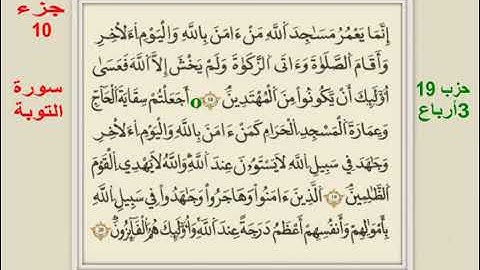 جزء
10
سورة
التوبة
إِنَّمَا يَعْمُرُ مَسَٰجِدَ اَ۬للَّهِ مَنَ اٰمَنَ بِاللَّهِ وَالْيَوْمِ اِ۬لَاخِرِ
وَأَقَامَ اَ۬لصَّلَوٰةَ وَءَاتَى اَ۬لزَّكَوٰةَ وَلَمْ يَخْشَ إِلَّا اَ۬للَّهَ فَعَسَىٰٓ
أُوْلَٰٓئِكَ أَنْ يَّكُونُواْ مِنَ اَ۬لْمُهْتَدِينَۖ أَجَعَلْتُمْ سِقَايَةَ اَ۬لْحَآجِّ
وَعِمَارَةَ اَ۬لْمَسْجِدِ اِ۬لْحَرَامِ كَمَنَ اٰمَنَ بِاللَّهِ وَالْيَوْمِ اِ۬لَاخِرِ
وَجَٰهَدَ فِي سَبِيلِ اِ۬للَّهِ لَا يَسْتَوُۥنَ عِندَ اَ۬للَّهِۖ وَاللَّهُ لَا يَهْدِي اِ۬لْقَوْمَ
اَ۬لظَّٰلِمِينَۖ اَ۬لذِينَ ءَامَنُواْ وَهَاجَرُواْ وَجَٰهَدُواْ فِي سَبِيلِ اِ۬للَّهِ
بِأَمْوَٰلِهِمْ وَأَنفُسِهِمُۥٓ أَعْظَمُ دَرَجَةً عِندَ اَ۬للَّهِۖ وَأُوْلَٰٓئِكَ هُمُ اُ۬لْفَآئِزُونَۖ
حزب 19
3أرباع